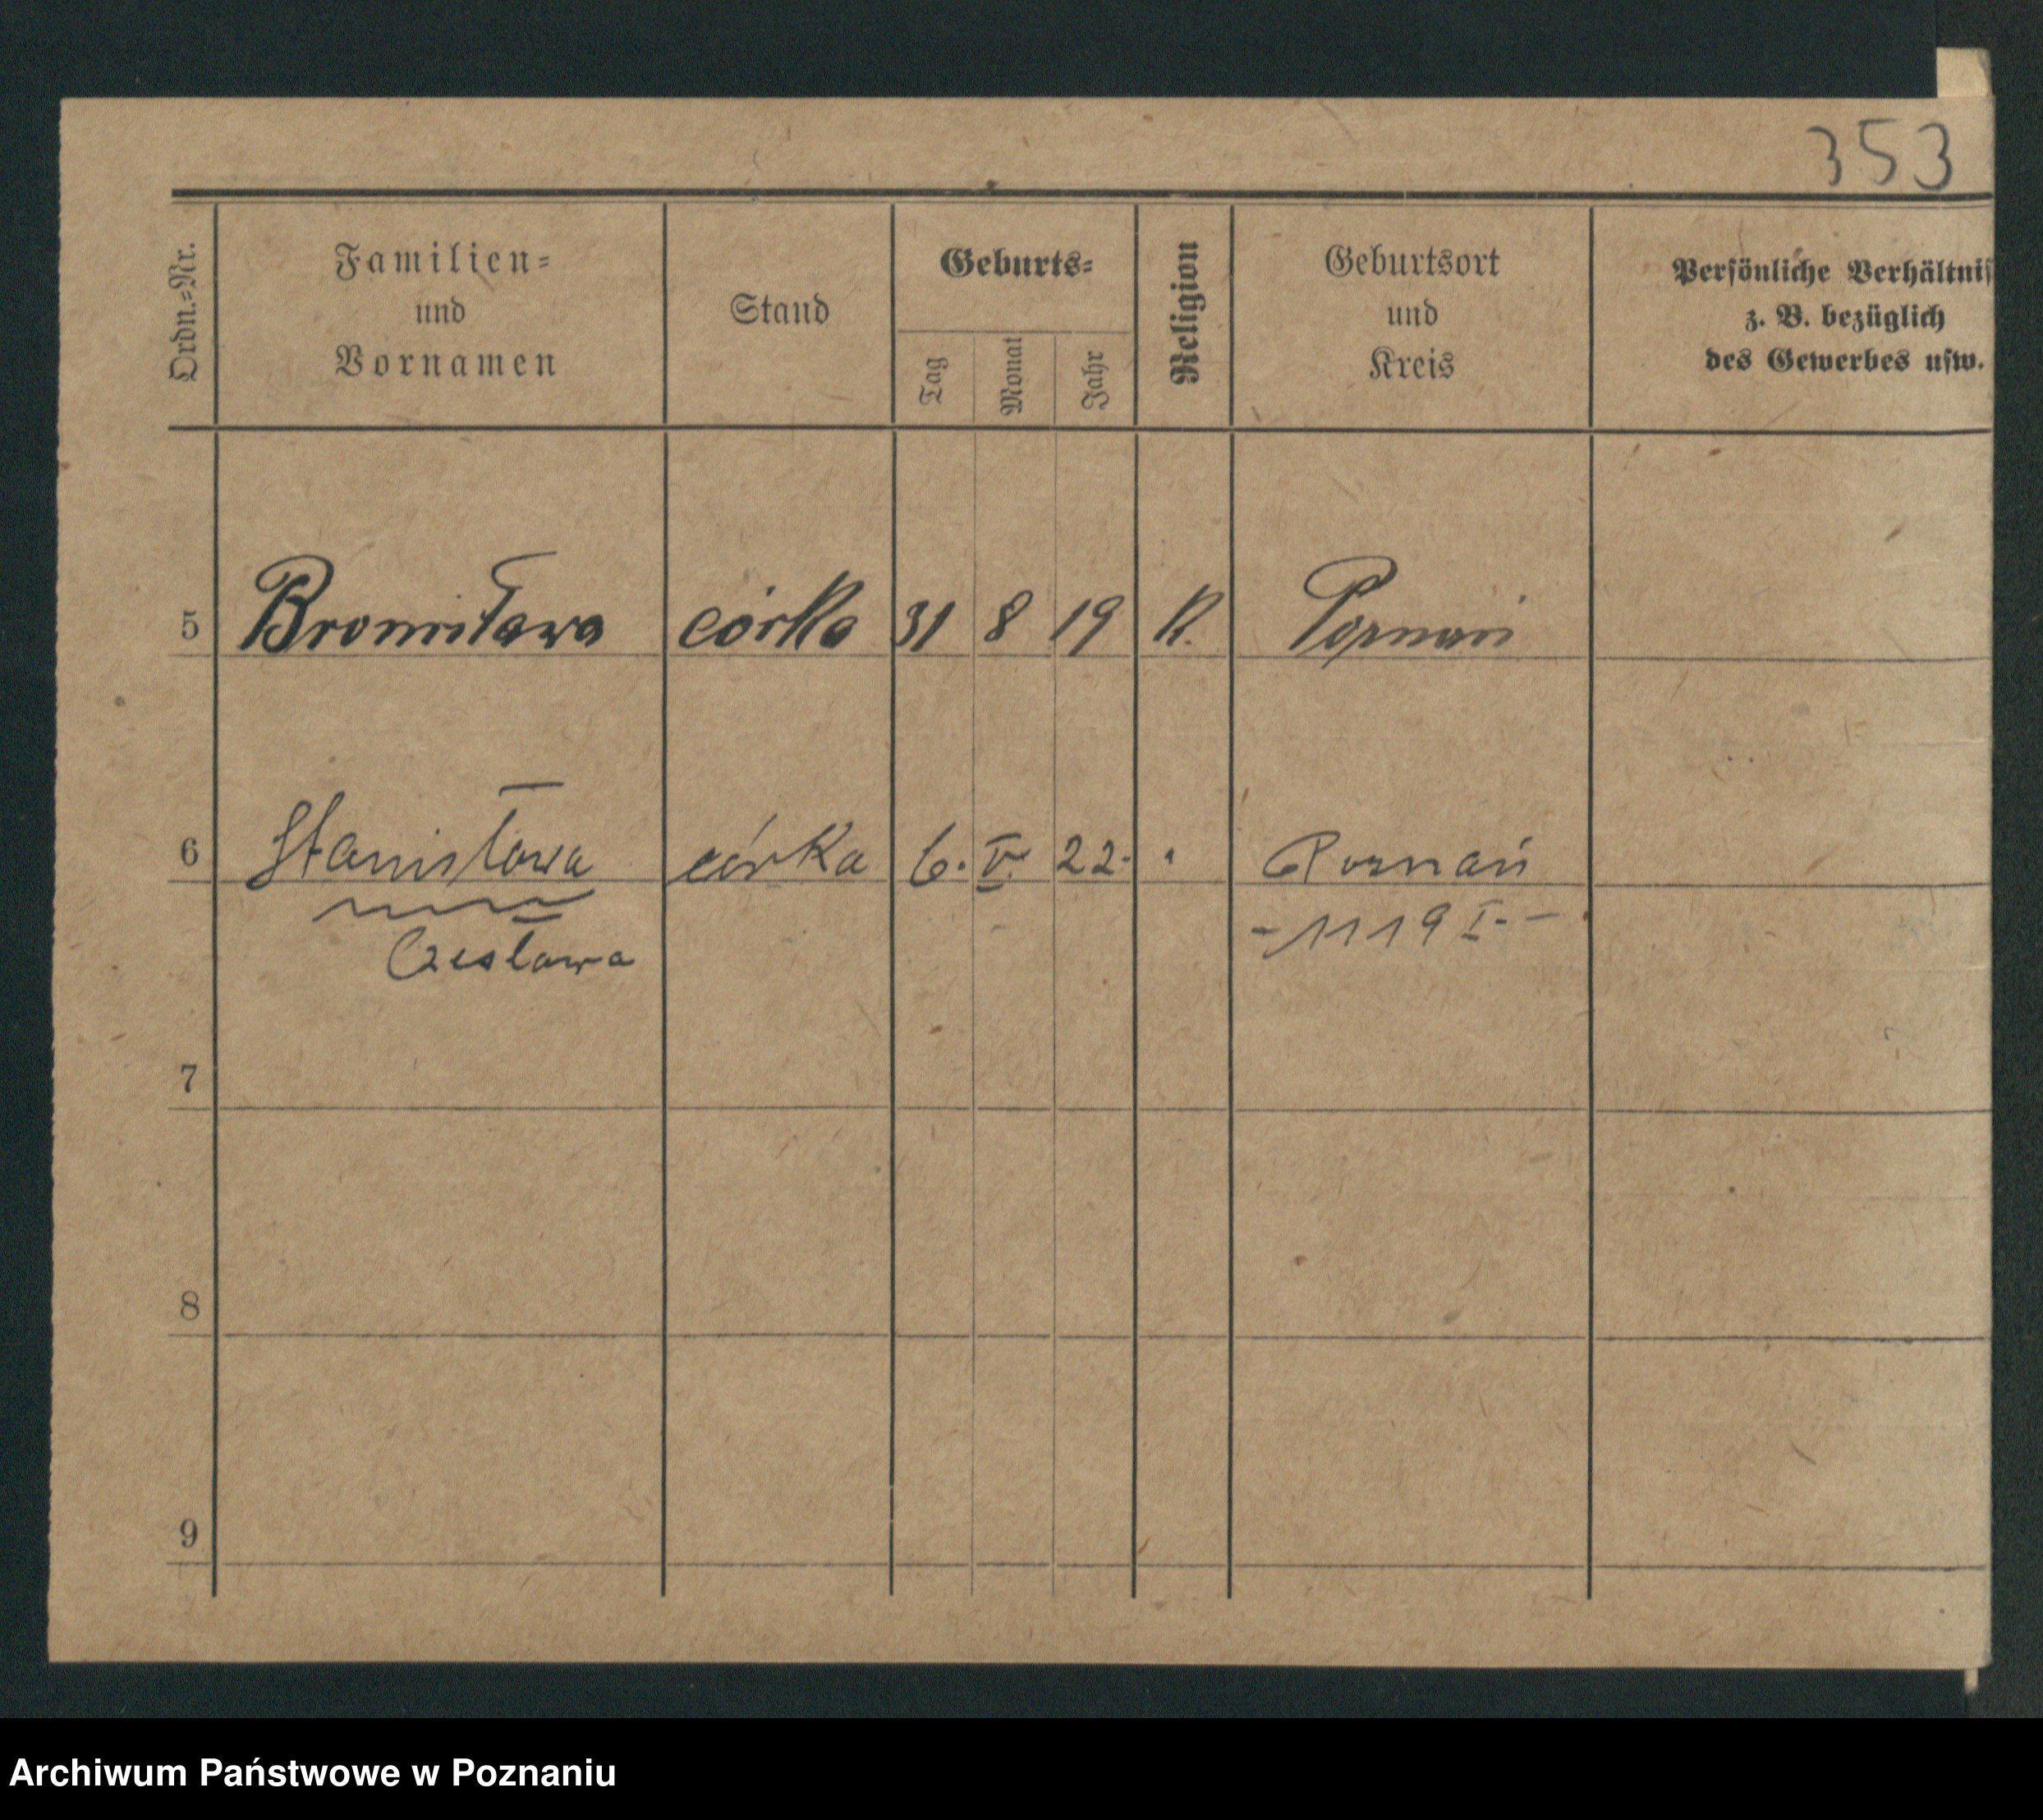 353
Ordn.=Nr.
Familien=
und
Vornamen
Stand
Geburts=
Tag
Monat
Jahr
Religion
Geburtsort
und
Kreis
Persönliche Verhältnis
z. B. bezüglich
des Gewerbes usw.
5 Bronisława córka 31 8 19 K. Poznań
6 Stanisława córka 6. V. 22. " Poznań
Czesława - 1119 I. -
7
8
9
Archiwum Państwowe w Poznaniu